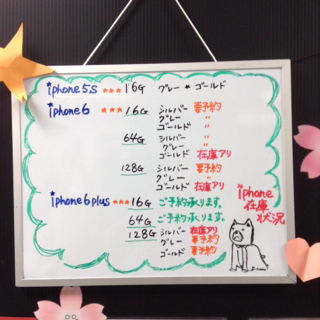 iphone5s *** 16G グレー * ゴールド
iphone6 *** 16G シルバー 要予約
グレー 〃
ゴールド 〃
64G シルバー 〃
グレー 〃
ゴールド 在庫アリ
128G シルバー 要予約
グレー 〃
ゴールド 在庫アリ
iphone6plus *** 16G ご予約承ります。
64G ご予約承ります。
128G シルバー 在庫アリ
グレー 要予約
ゴールド 要予約
iphone
在庫
状況